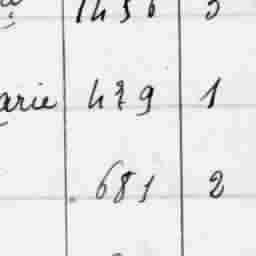 1456 3
arie 479 1
681 2